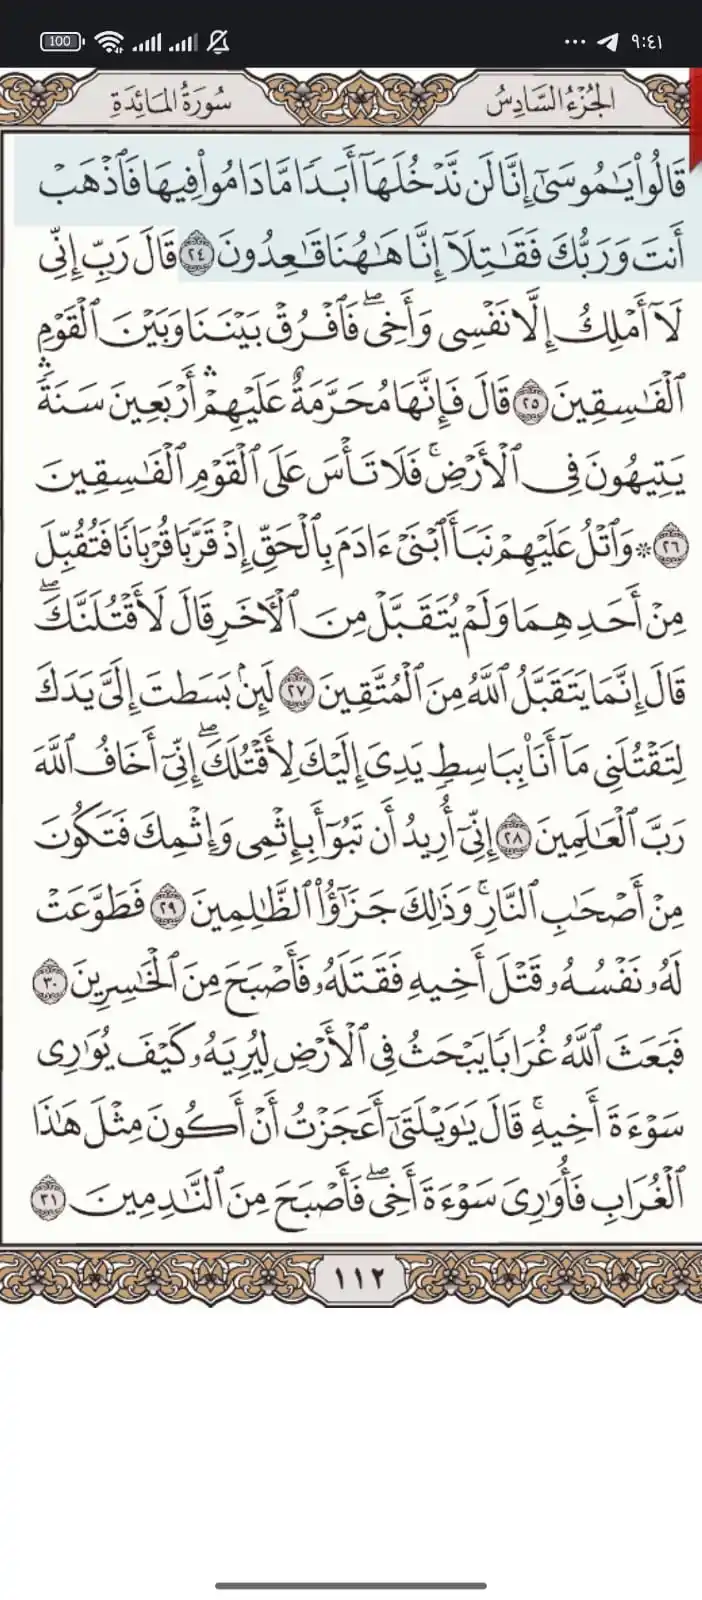 100 ٩:٤١
سُورَةُ المَائِدَةِ الجُزْءُ السَّادِسُ
قَالُوا۟ يَٰمُوسَىٰٓ إِنَّا لَن نَّدۡخُلَهَآ أَبَدٗا مَّا دَامُوا۟ فِيهَا فَٱذۡهَبۡ
أَنتَ وَرَبُّكَ فَقَٰتِلَآ إِنَّا هَٰهُنَا قَٰعِدُونَ ٢٤ قَالَ رَبِّ إِنِّي
لَآ أَمۡلِكُ إِلَّا نَفۡسِي وَأَخِيۖ فَٱفۡرُقۡ بَيۡنَنَا وَبَيۡنَ ٱلۡقَوۡمِ
ٱلۡفَٰسِقِينَ ٢٥ قَالَ فَإِنَّهَا مُحَرَّمَةٌ عَلَيۡهِمۡۛ أَرۡبَعِينَ سَنَةٗۛ
يَتِيهُونَ فِي ٱلۡأَرۡضِۚ فَلَا تَأۡسَ عَلَى ٱلۡقَوۡمِ ٱلۡفَٰسِقِينَ
٢٦ ۞ وَٱتۡلُ عَلَيۡهِمۡ نَبَأَ ٱبۡنَيۡ ءَادَمَ بِٱلۡحَقِّ إِذۡ قَرَّبَا قُرۡبَانٗا فَتُقُبِّلَ
مِنۡ أَحَدِهِمَا وَلَمۡ يُتَقَبَّلۡ مِنَ ٱلۡأٓخَرِ قَالَ لَأَقۡتُلَنَّكَۖ
قَالَ إِنَّمَا يَتَقَبَّلُ ٱللَّهُ مِنَ ٱلۡمُتَّقِينَ ٢٧ لَئِنۢ بَسَطتَ إِلَيَّ يَدَكَ
لِتَقۡتُلَنِي مَآ أَنَا۠ بِبَاسِطٖ يَدِيَ إِلَيۡكَ لِأَقۡتُلَكَۖ إِنِّيٓ أَخَافُ ٱللَّهَ
رَبَّ ٱلۡعَٰلَمِينَ ٢٨ إِنِّيٓ أُرِيدُ أَن تَبُوٓأَ بِإِثۡمِي وَإِثۡمِكَ فَتَكُونَ
مِنۡ أَصۡحَٰبِ ٱلنَّارِۚ وَذَٰلِكَ جَزَٰٓؤُا۟ ٱلظَّٰلِمِينَ ٢٩ فَطَوَّعَتۡ
لَهُۥ نَفۡسُهُۥ قَتۡلَ أَخِيهِ فَقَتَلَهُۥ فَأَصۡبَحَ مِنَ ٱلۡخَٰسِرِينَ ٣٠
فَبَعَثَ ٱللَّهُ غُرَابٗا يَبۡحَثُ فِي ٱلۡأَرۡضِ لِيُرِيَهُۥ كَيۡفَ يُوَٰرِي
سَوۡءَةَ أَخِيهِۚ قَالَ يَٰوَيۡلَتَىٰٓ أَعَجَزۡتُ أَنۡ أَكُونَ مِثۡلَ هَٰذَا
ٱلۡغُرَابِ فَأُوَٰرِيَ سَوۡءَةَ أَخِيۖ فَأَصۡبَحَ مِنَ ٱلنَّٰدِمِينَ ٣١
١١٢